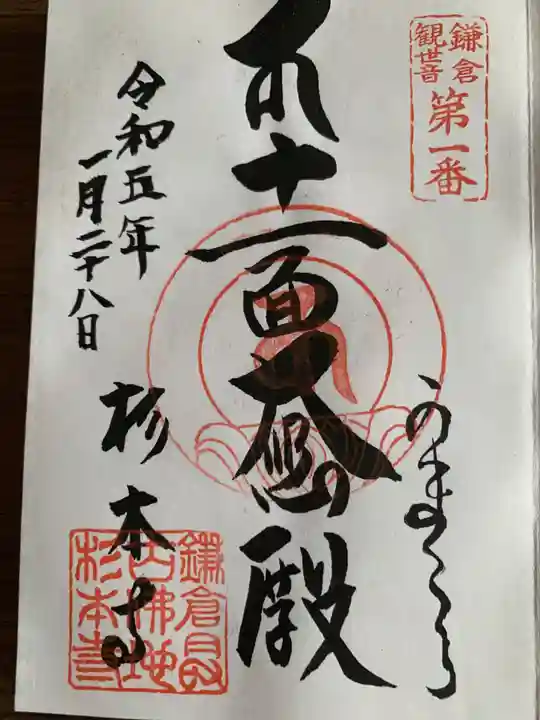 鎌倉
観世音
第一番
かまくら
十一面大悲殿
令和五年
一月二十八日
杉本寺
鎌倉最
古佛地
杉本寺